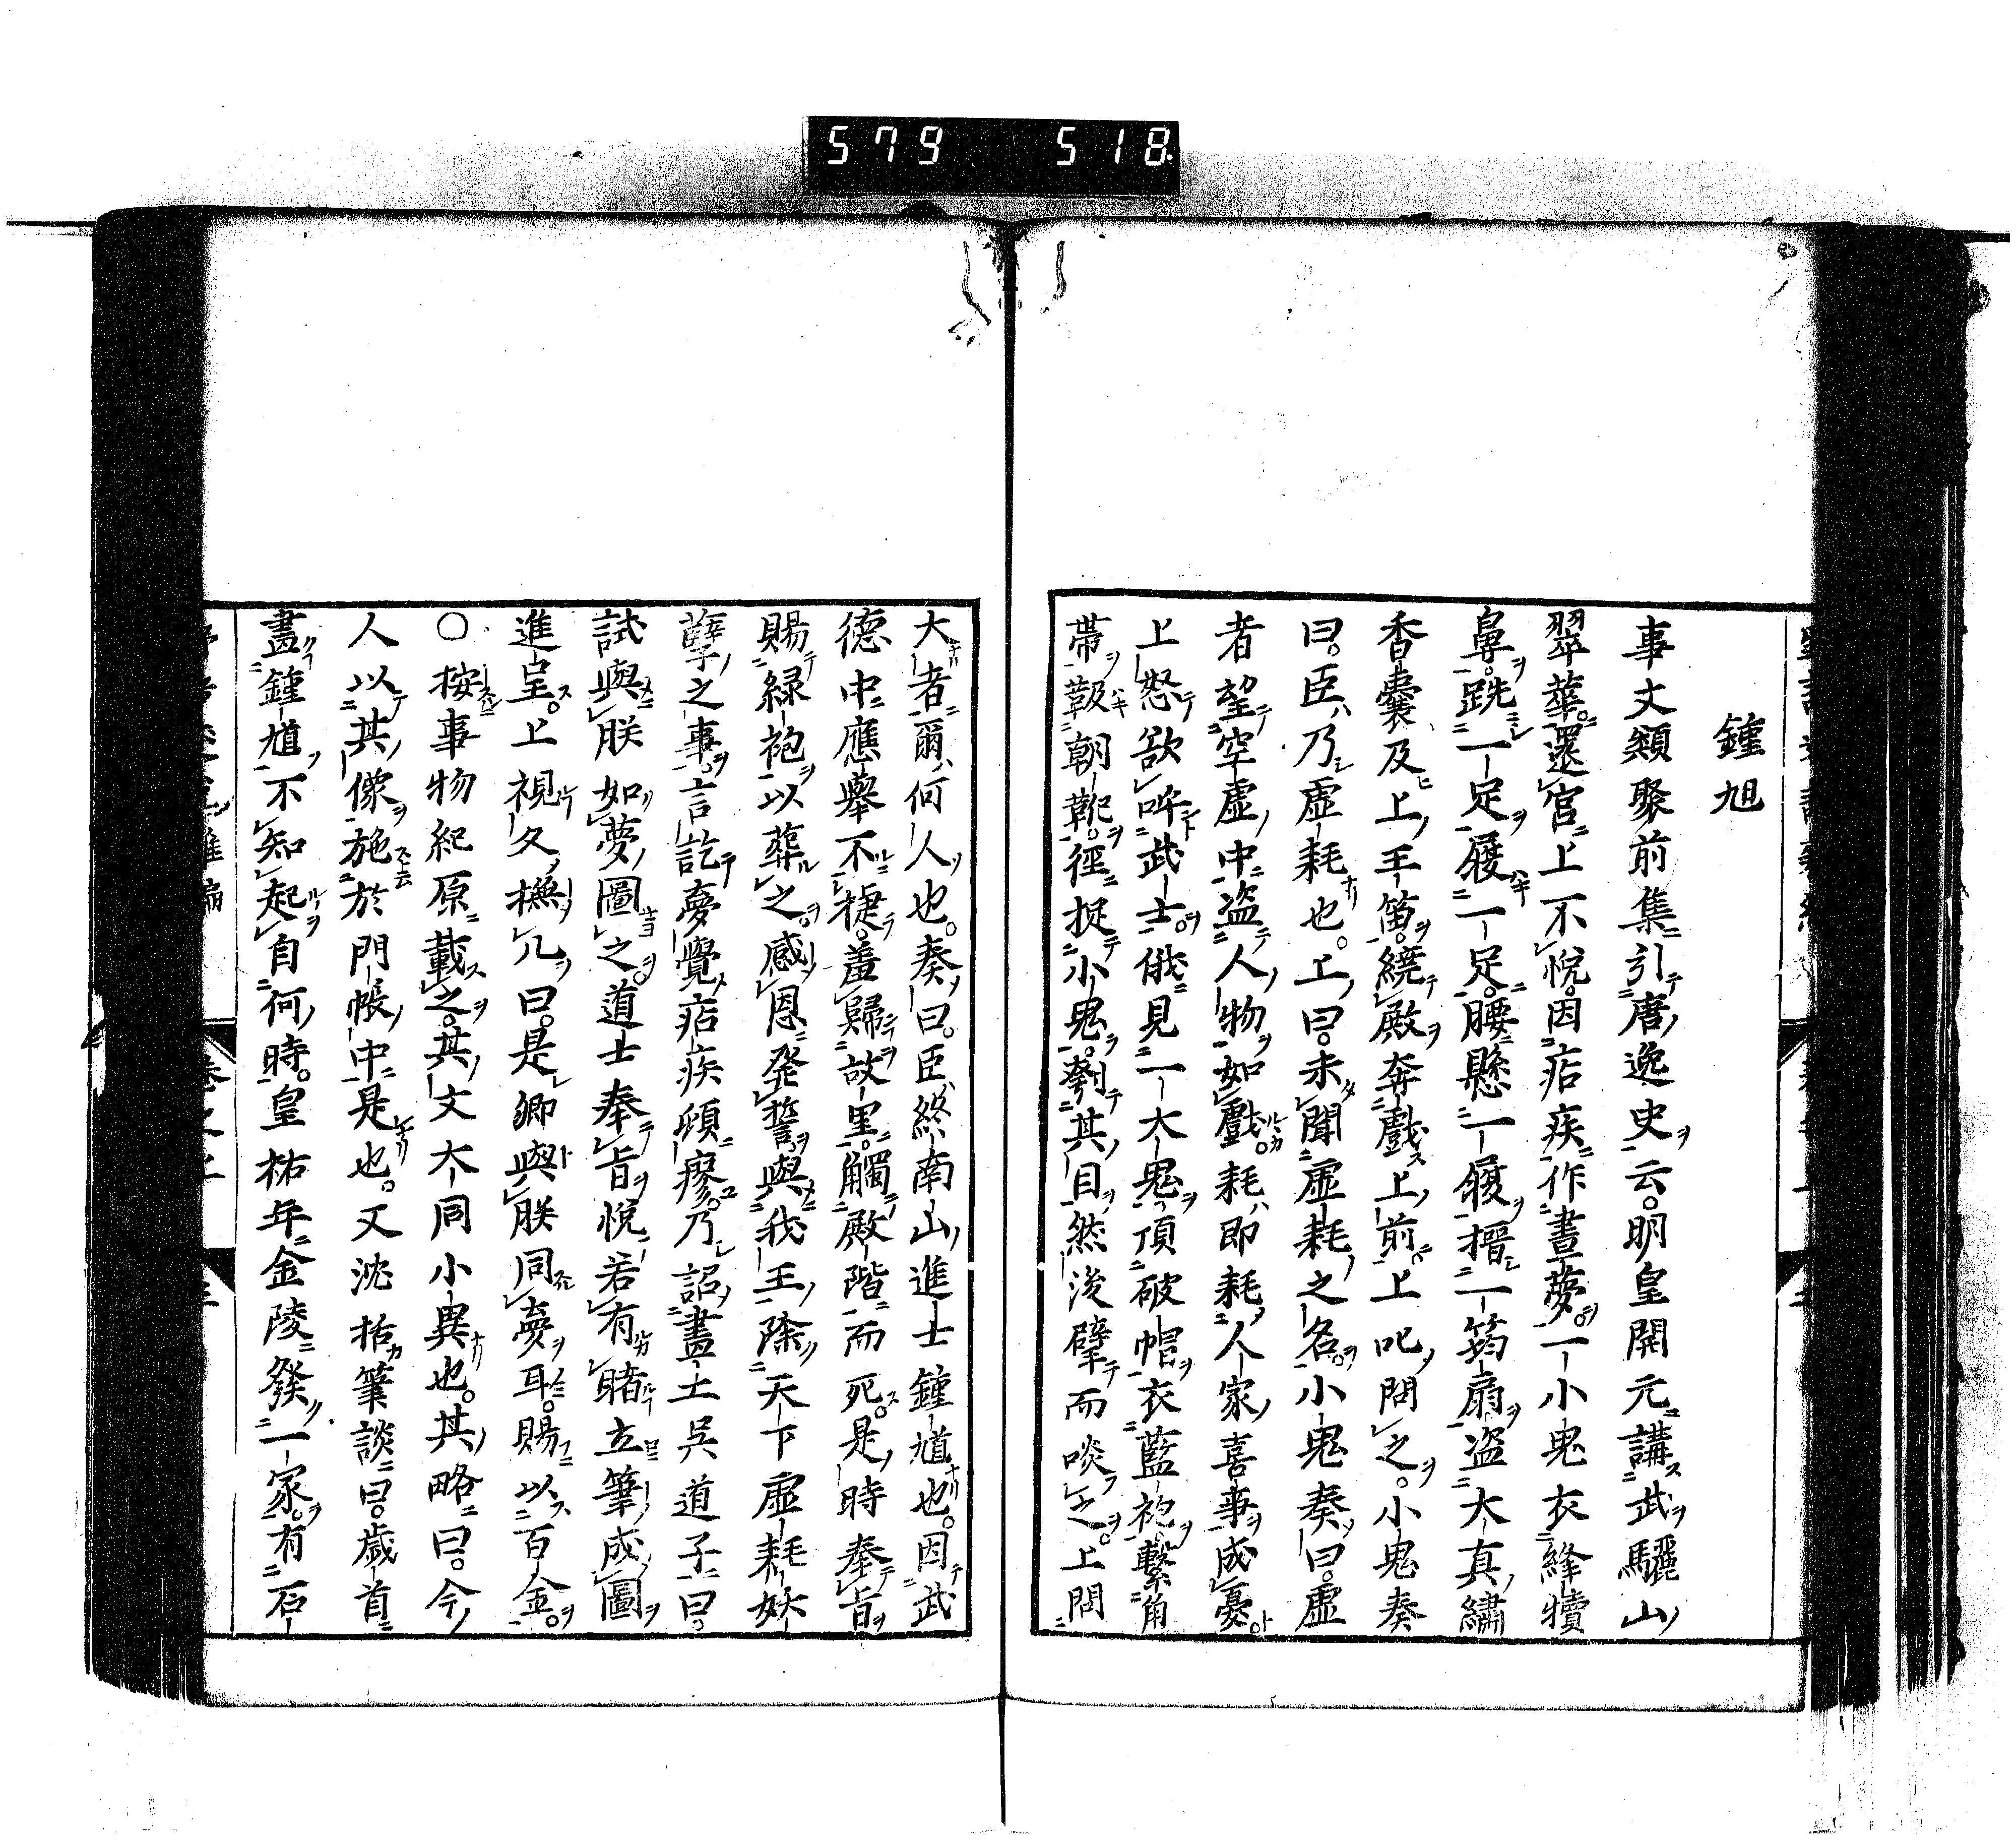 579 518
鍾旭
事文類聚前集引唐逸史云。明皇開元講武驪山
翠華還宮上不悅。因痁疾作晝夢一小鬼衣絳犢
鼻。跣一足履一足。腰懸一履搢一筠扇盜大真繡
香囊及上玉笛。繞殿奔戲上前上叱問之。小鬼奏
曰。臣乃虛耗也。上曰。未聞虛耗之名。小鬼奏曰。虛
者望空虛中盜人物如戲。耗即耗人家喜事成憂。
上怒欲呼武士。俄見一大鬼頂破帽衣藍袍。繫角
帶靸朝靴。徑捉小鬼。刳其目然後擘而啖之。上問
大者爾何人也。奏曰。臣終南山進士鍾馗也。因武
德中應舉不捷。羞歸故里。觸殿階而死。是時奉旨
賜緑袍以葬之。感恩発誓。與我王除天下虛耗妖
孽之事。言訖夢覺痁疾頓瘳。乃詔畫士吳道子曰。
試與朕如夢圖之。道士奉旨悅若有睹立筆成圖
進呈。上視久撫几曰。是卿與朕同夢耳。賜以百金。
○按事物紀原載之。其文大同小異也。其略曰。今
人以其像施於門帳中是也。又沈括筆談曰。歲首
畫鍾馗不知起自何時。皇祐年金陵發一家。有石